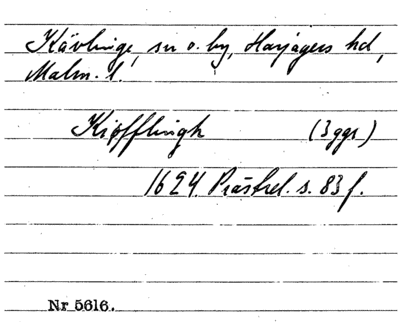 Kävlinge, sn o. by, Harjagers hd,
Malm. l.
Kiøfflingh (3 ggr)
1624 Prästrel. s. 83 f.
Nr 5616.